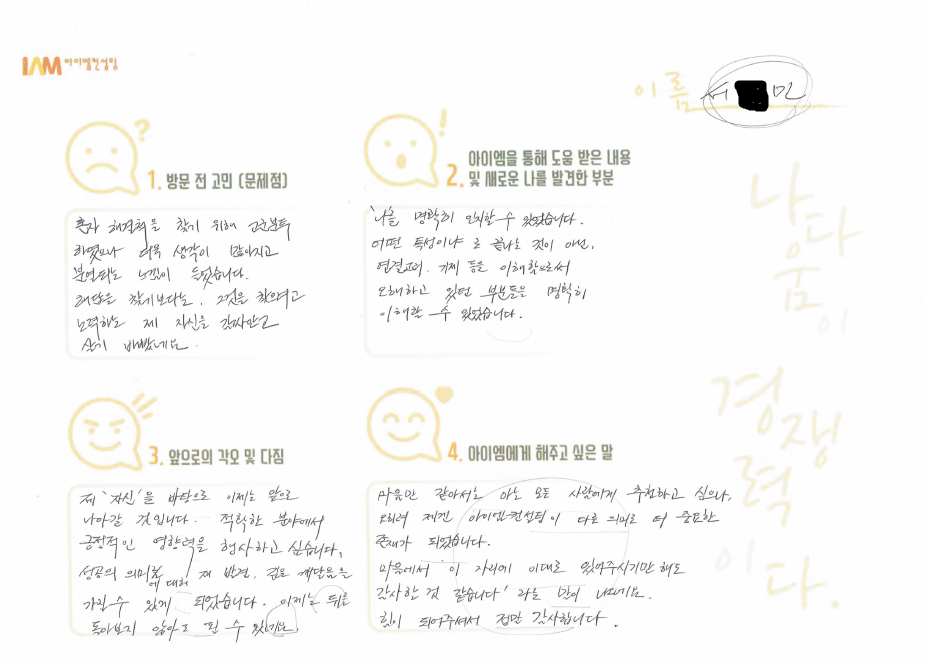 IAM 아이엠컨설팅
이름 서 민
1. 방문 전 고민 (문제점)
혼자 해결책을 찾기 위해 고군분투
하였으나 더욱 생각이 많아지고
분열되는 느낌이 들었습니다.
해답을 찾기보다는, 그것을 찾으려고
노력하는 제 자신을 감싸안고
살기 바빴네요.
2. 아이엠을 통해 도움 받은 내용
및 새로운 나를 발견한 부분
'나'를 명확히 인지할 수 있었습니다.
어떤 특성이냐 로 끝나는 것이 아닌,
연결고리, 기제 등을 이해함으로써
오해하고 있던 부분들을 명확히
이해할 수 있었습니다.
3. 앞으로의 각오 및 다짐
제 '자신'을 바탕으로 이제는 앞으로
나아갈 것입니다. 적확한 분야에서
긍정적인 영향력을 행사하고 싶습니다,
성공의 의미에 대해 재 발견, 깨달음을
가질 수 있게 되었습니다. 이제는 뒤를
돌아보지 않아도 될 수 있겠네요.
4. 아이엠에게 해주고 싶은 말
마음만 같아서는 아는 모든 사람에게 추천하고 싶으나,
오히려 제겐 아이엠컨설팅이 다른 의미로 더 중요한
존재가 되었습니다.
마음에서 '이 자리에 이대로 있어주시기만 해도
감사한 것 같습니다' 라는 말이 나오네요.
힘이 되어주셔서 정말 감사합니다.
나다움이
경쟁력이다.